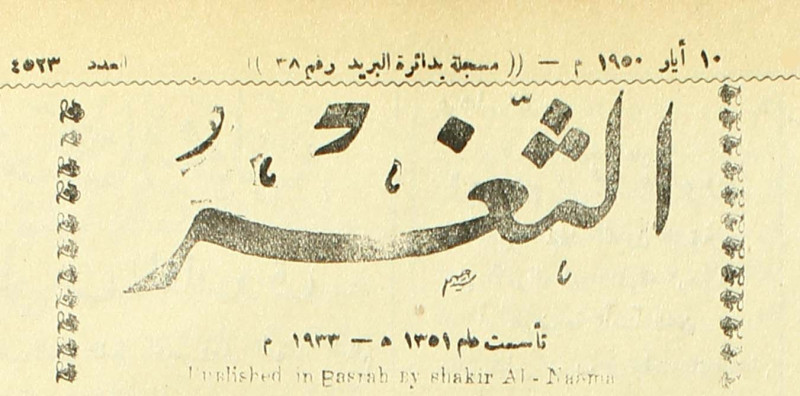 ١٠ أيار ١٩٥٠ م — (( مسجلة بدائرة البريد رقم ٣٨ )) العدد ٤٥٢٣
الثغر
تأسست عام ١٣٥١ ه — ١٩٣٣ م
Published in Basrah By shakir Al - Naama